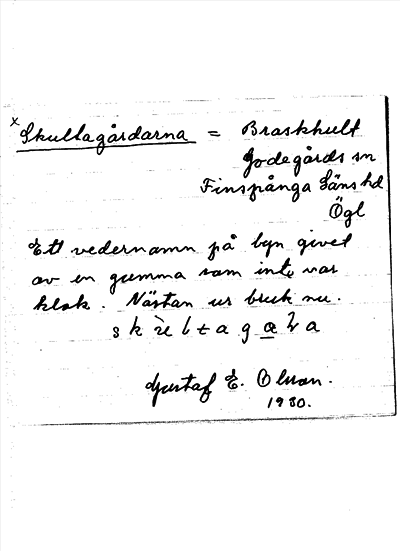 x Skultagårdarna = Braskhult
Godegårds sn
Finspånga läns hd
Ögl
Ett vedernamn på byn givet
av en gumma som inte var
klok. Nästan ur bruk nu.
Gustaf E. Olsson.
1930.